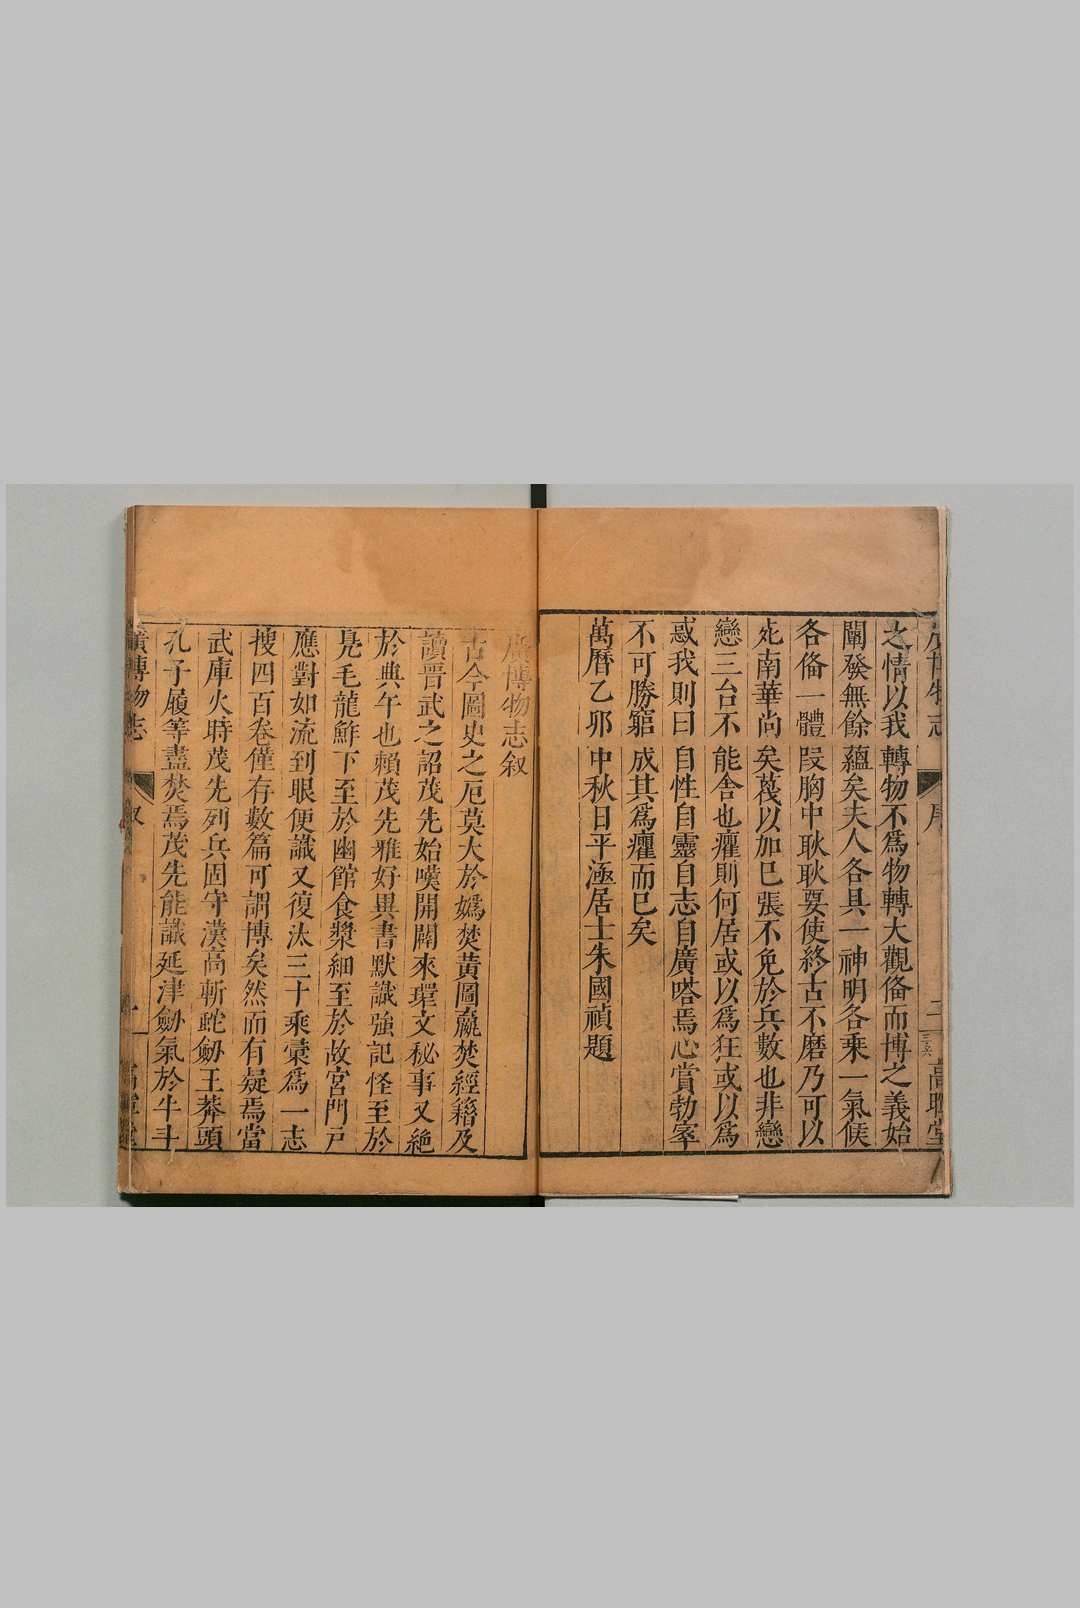 之情以我轉物不爲物轉大觀俻而博之義始
闡發無餘蘊矣夫人各具一神明各乘一氣候
各俻一體段胸中耿耿要使終古不磨乃可以
死南華尚矣蔑以加已張不免於兵數也非戀
戀三台不能舍也癯則何居或以爲狂或以爲
惑我則曰自性自靈自志自廣嗒焉心賞勃窣
不可勝窮成其爲癯而已矣
萬曆乙卯中秋日平澸居士朱國禎題
廣博物志 序 二 高暉堂
廣博物志叙
古今圖史之厄莫大於嬀焚黃圖嬴焚經籍及
讀晋武之詔茂先始嘆開闢來瓌文秘事又絶
於典午也賴茂先雅好異書默識強記怪至於
鳧毛龍鮓下至於幽館食漿細至於故宮門戸
應對如流到眼便識又復汰三十乘彚爲一志
搜四百卷僅存數篇可謂博矣然而有疑焉當
武庫火時茂先列兵固守漢高斬蛇劒王莽頭
孔子履等盡焚焉茂先能識延津劒氣於牛斗
廣博物志 叙 一 高暉堂